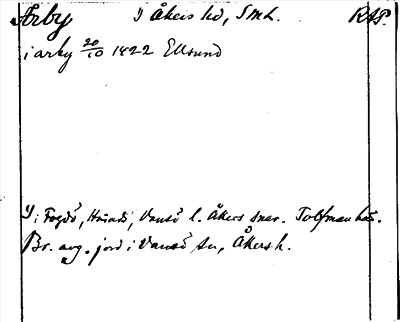 Ärby I Åkers hd, Sml. RAP.
i arby 20/10 1422 Ellsund
I i Fogdö, Husaö, Vansö l. Åkers snar. Tolfmanhas.
Br. avg. jord i Vansö sn, Åkersh.